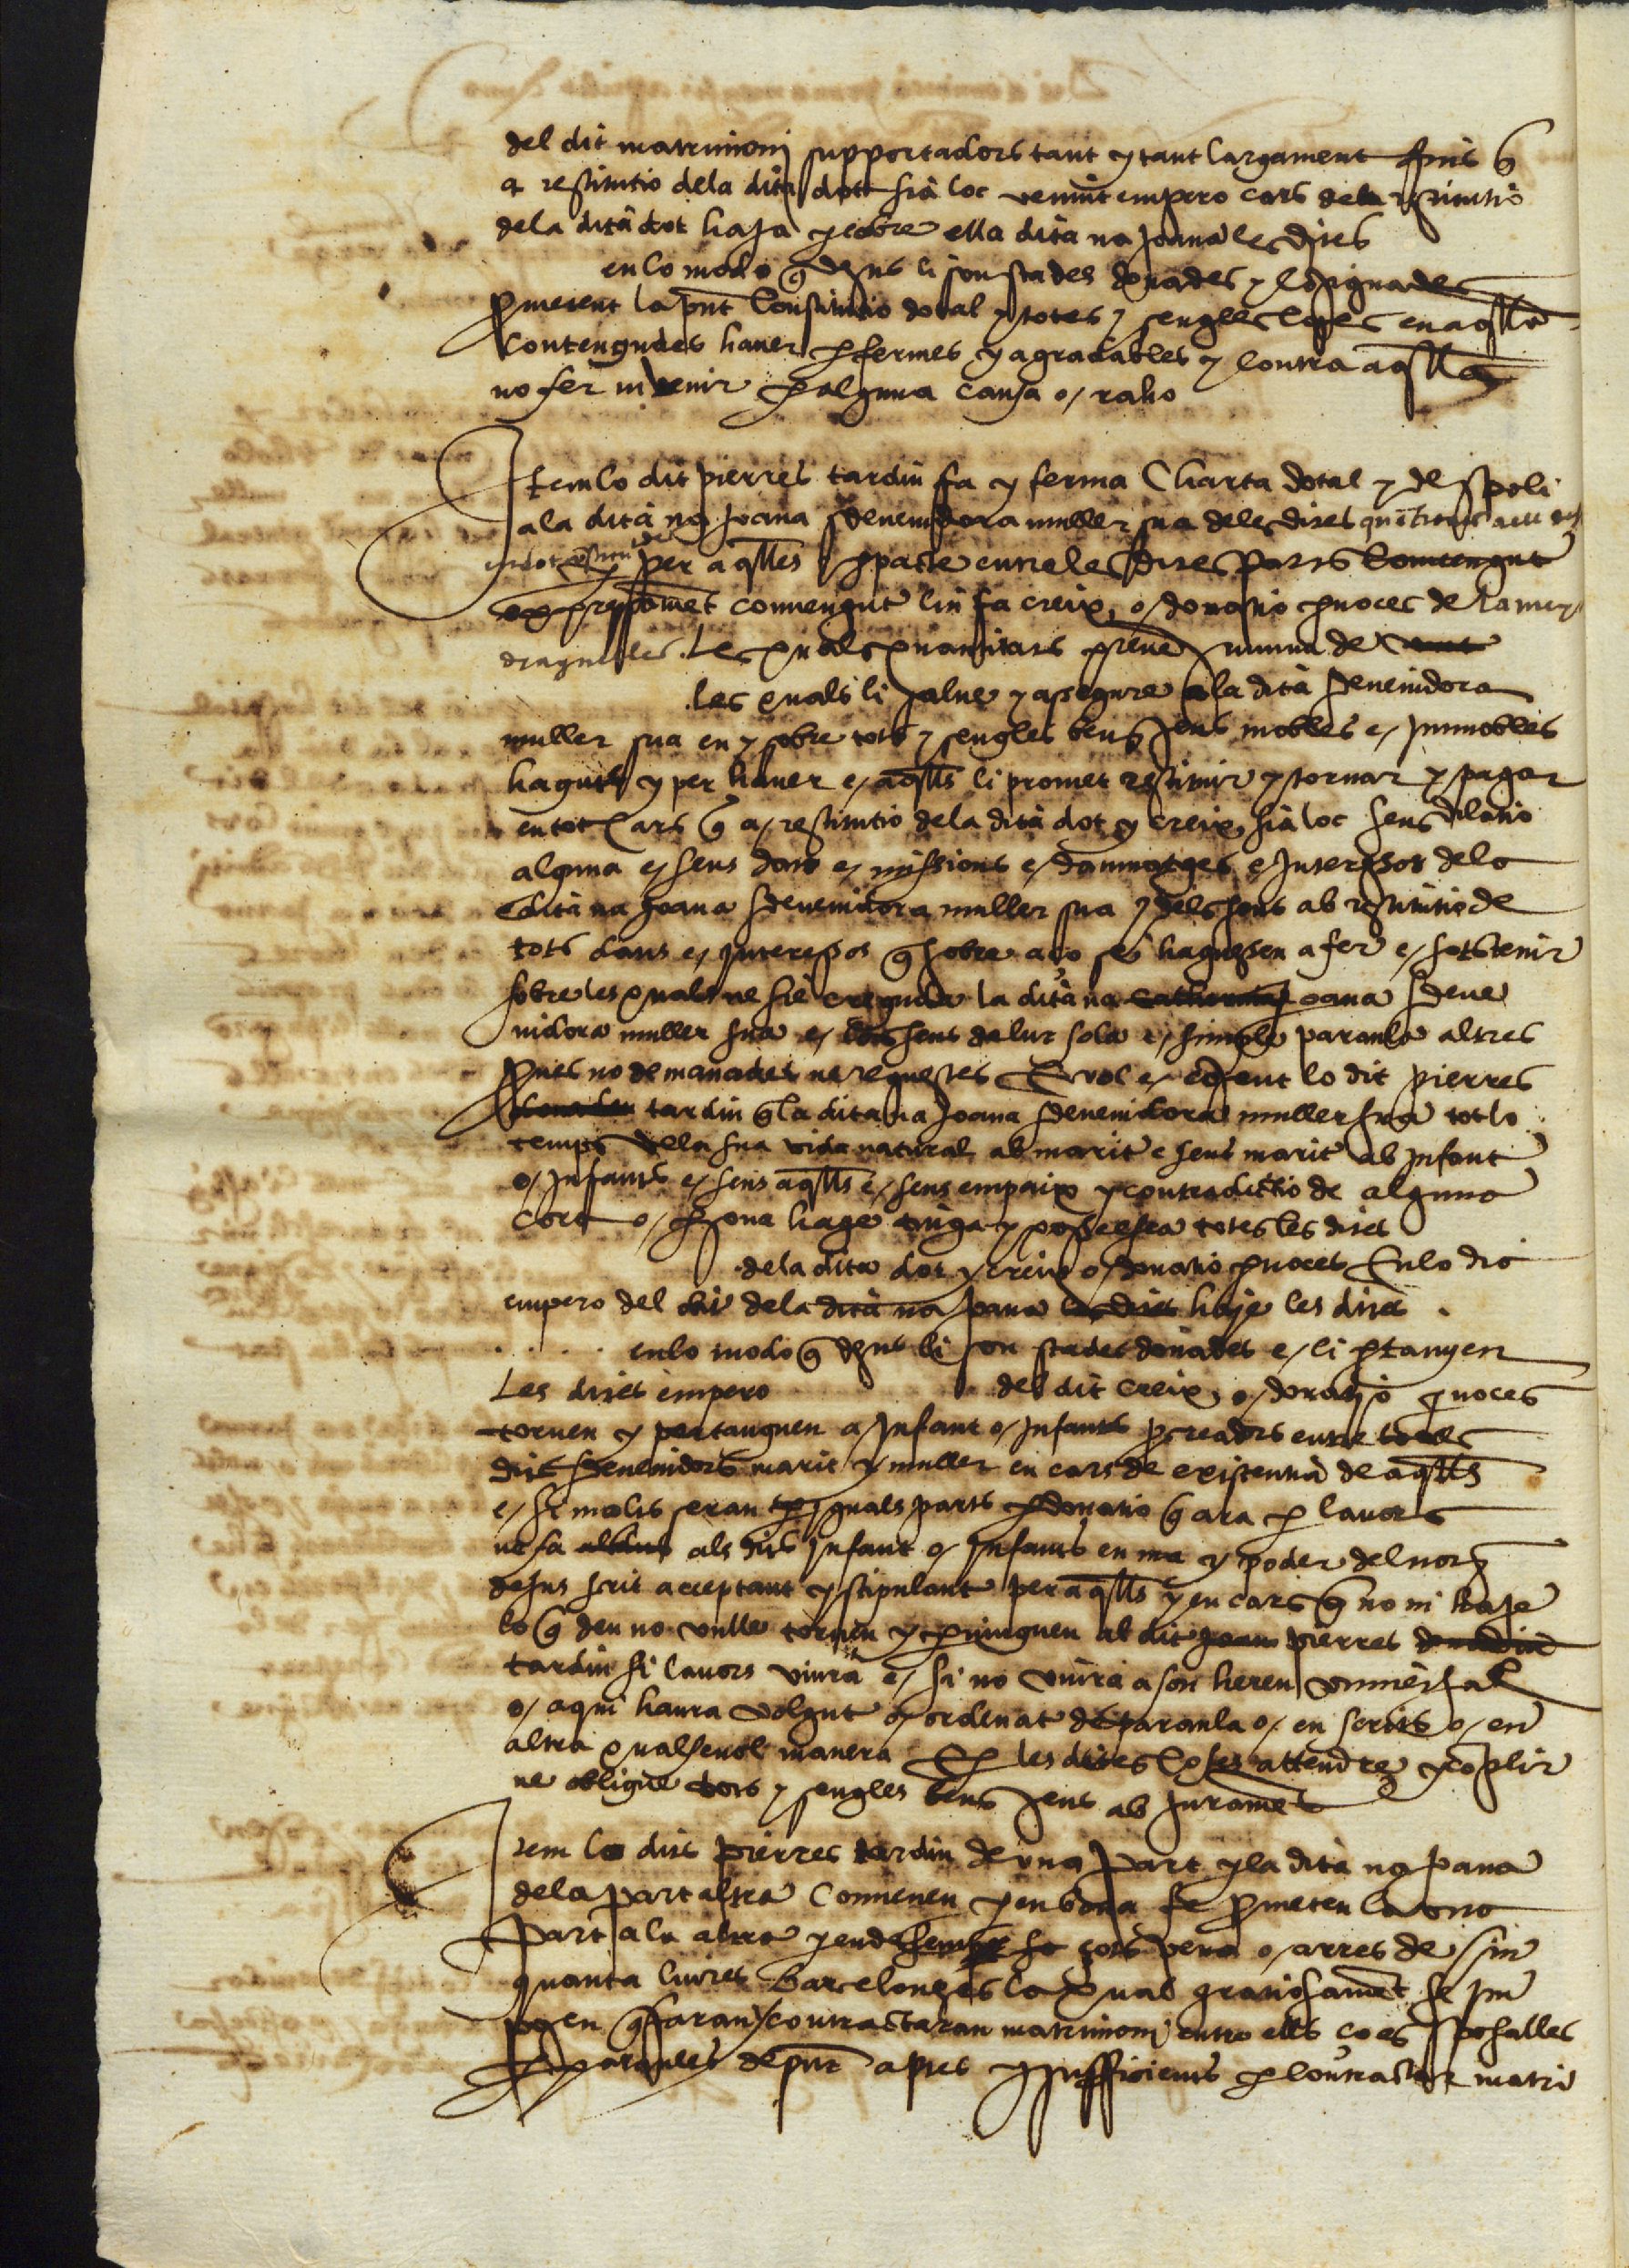 del dit matrimonj supportadors tant y tant largament fins q̄
a restitutio dela dita dot sia loc venint empero cars dela restitutio
dela dita dot haja y cobre ella dita na joana les dites
en lo modo q̄ dejus li son stades donades y cōsignades
ꝓmetent la pn̄t Constitutio dotal y totes y sengles coses en aq̄lla
Contengudes haver ꝑ fermes y agradables y contra aq̄lla
no fer ni venir ꝑ alguna causa o/ raho
Item lo dit pierres tardin fa y ferma Charta dotal y de spoli
a la dita na joana sdevenidora muller sua deles dites
per aq̄lles ꝑ pacte entre les dites parts Convengut
expressamēt convengut lin fa creix, o/ donatio ꝑ noces de
Les quals quantitats suma de
les quals li salve y assegure a la dita sdevenidora
muller sua en y sobre tots y sengles bens seus mobles e/ jmmobles
haguts y per haver e/ aq̄lls li promet restituir y tornar y pagar
en tot Cars q̄ a/ restitutio dela dita dot y creix sia loc sens dilatio
alguna e/ sens dans e/ missions e/ dampnatges e/ jnteressos dela
dita na joana sdevenidora muller sua y dels seus ab restitutio de
tots dans e/ jnteressos q̄ sobre aço se haguessen a fer e/ sostenir
sobre les quals ne sie creguda la dita na catherina joana sdeve
nidora muller sua e/ los seus de lur sola e/ simple paraula altres
ꝓves no demanades ne requestes E vol e/ cōsent lo dit pierres
tardin q̄ la dita na joana sdevenidora muller sua tot lo
temps dela sua vida natural ab marit e sens marit ab jnfant
o/ jnfants e/ sens aq̄lls e/ sens empaix y contradictio de alguna
cort o/ ꝑsona hage tinga y possehesca totes les dites
dela dita dot y creix o/ donatio ꝑ noces En lo dia
empero del obit dela dita na joana les dites haje les dites
en lo modo q̄ dejus li son stades donades e/ li ꝑtanyen
Les dites empero del dit creix, o/ donatio ꝑ noces
tornen y pertanguen a jnfant o/ jnfants ꝓcreadors entre los
dits sdevenidors marit y muller en cars de existentia de aq̄lls
e/ si molts seran ꝑ yguals parts ꝑ donatio q̄ ara ꝑ lavors
ne fa als dits jnfant o/ jnfants en ma y poder del not̄
dejus scrit acceptant y stipulant per aq̄lls y en cars q̄ no ni haje
lo q̄ deu no vulle tornen y ꝑvinguen al dit joan pierres
tardin si lavors viura e/ si no viura a son hereu universal
o/ a qui haura volgut o/ ordenat de paraula o/ en scrits o/ en
altra qualsevol manera E ꝑ les dites coses attendre y cōplir
ne obligue tots y sengles bens seus ab juramēt
Item lo dit pierres tardin de una part y la dita na joana
dela part altra Convenen y en bona fe ꝓmeten la una
part a la altra y endesemps sots pena o/ arres de sin
quanta liures Barcelonezes la qual gratiosamēt se jm
posen q̄ faran y contractaran matrimonj entre ells ço es sposalles
ꝑ paraules de pn̄t aptes y sufficients ꝑ contractar matri